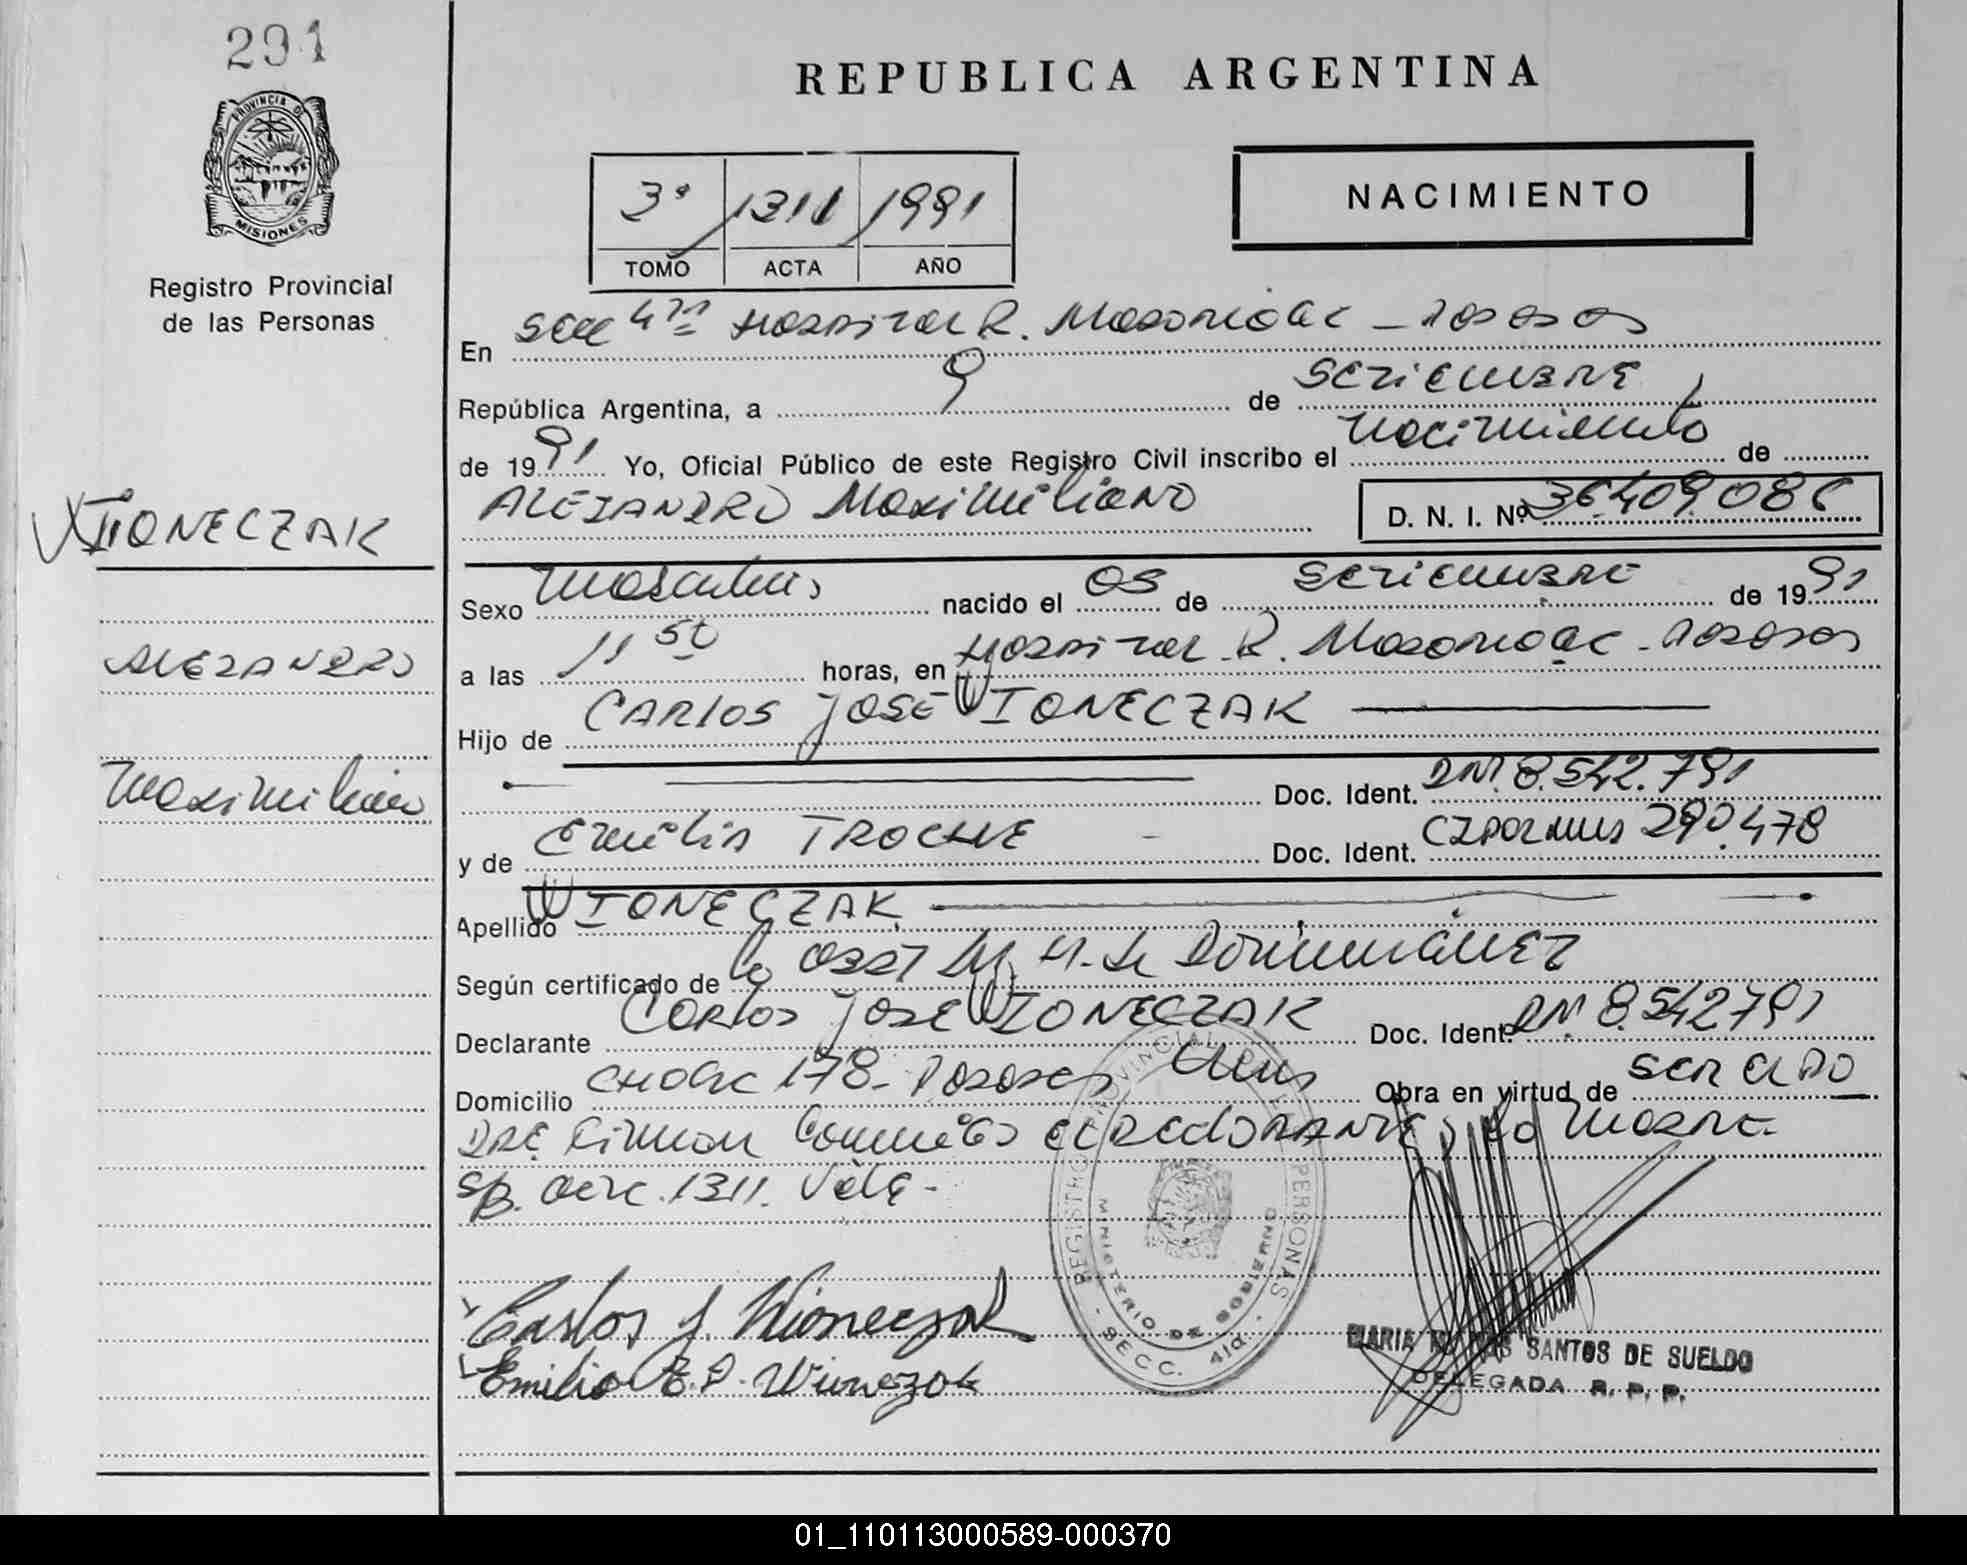 291
PROVINCIA DE
MISIONES
Registro Provincial
de las Personas
REPUBLICA ARGENTINA
NACIMIENTO
3º 1311 1991
TOMO ACTA AÑO
En Secc 4ta Hospital R. Madariaga - Posadas
República Argentina, a 9 de Setiembre,
de 1991 Yo, Oficial Público de este Registro Civil inscribo el nacimiento de
ALEJANDRO Maximiliano D. N. I. Nº 36.409.086
WIONECZAK
ALEJANDRO
Maximiliano
Sexo Masculino nacido el 03 de Setiembre de 1991
a las 11 50 horas, en Hospital R. Madariaga - Posadas
Hijo de CARLOS JOSÉ WIONECZAK
Doc. Ident. DNI. 8.542.791
y de Emilia TROCHE Doc. Ident. 290.478
Apellido WIONECZAK
Según certificado de la Obst M. de
Declarante Carlos José WIONECZAK Doc. Ident. DNI. 8.542791
Domicilio 178 - Posadas Obra en virtud de ser el PA
DRE Firman el DECLARANTE y la MADRE.
s/b. 1311. Vale -
Carlos J. Wioneczak
Emilia Wioneczak
REGISTRO PROVINCIAL DE LAS PERSONAS
MINISTERIO DE GOBIERNO
- SECC. 4ta -
MARIA SANTOS DE SUELDO
DELEGADA R. P. P.
01_110113000589-000370